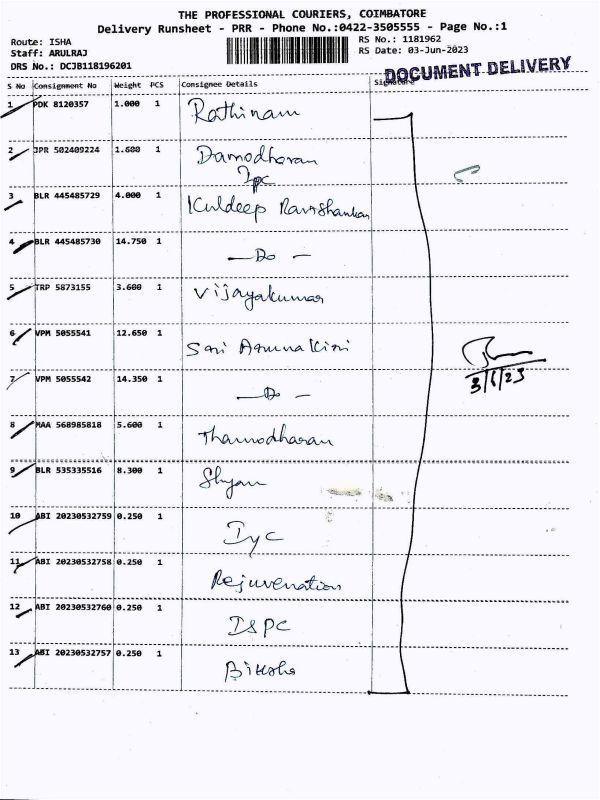 THE PROFESSIONAL COURIERS, COIMBATORE
Delivery Runsheet - PRR - Phone No.:0422-3505555 - Page No.:1
Route: ISHA
Staff: ARULRAJ
DRS No.: DCJB118196201
RS No.: 1181962
RS Date: 03-Jun-2023
DOCUMENT DELIVERY
S No Consignment No Weight PCS Consignee Details Signature
1 PDK 8120357 1.000 1 Rathinam
2 JPR 502409224 1.600 1 Damodharan
Ipc
3 BLR 445485729 4.000 1 Kuldeep Ravishankar
4 BLR 445485730 14.750 1 — Do —
5 TRP 5873155 3.600 1 Vijayakumar
6 VPM 5055541 12.650 1 Sri
7 VPM 5055542 14.350 1 — Do —
3/6/23
8 MAA 568985818 5.600 1 Thamodharan
9 BLR 535335516 8.300 1 Shyam
10 ABI 20230532759 0.250 1 IYC
11 ABI 20230532758 0.250 1 Rejuvenation
12 ABI 20230532760 0.250 1 ISPC
13 ABI 20230532757 0.250 1